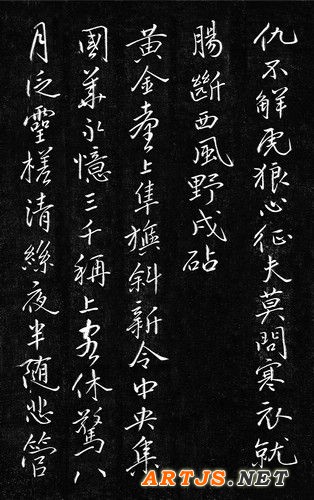 仇不解虎狼心征夫莫問寒衣就
腸斷西風野戍砧
黃金臺上隼旟斜新令中央集
國華永憶三千稱上客休驚八
月泛靈槎清絲夜半随悲管
ARTJS.NET